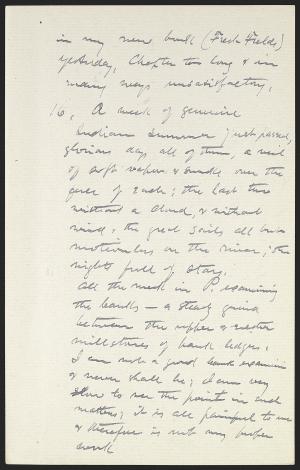 in my new book (Fresh Fields)
yesterday, Chapter too long & in
many ways unsatisfactory.
16, A week of genuine
Indian summer just passed,
glorious days all of them, a veil
of soft vapor & smoke over the
face of each; the last two
without a cloud, & without
wind, & the great sails all but
motionless on the river; the
nights full of stars.
All the week in P. examining
the banks — a steady grind
between the upper & nether
millstones of bank ledgers.
I am not a good bank examiner
& never shall be; I am very
slow to see the point in such
matters; it is all painful to me
& therefore is not my proper
work